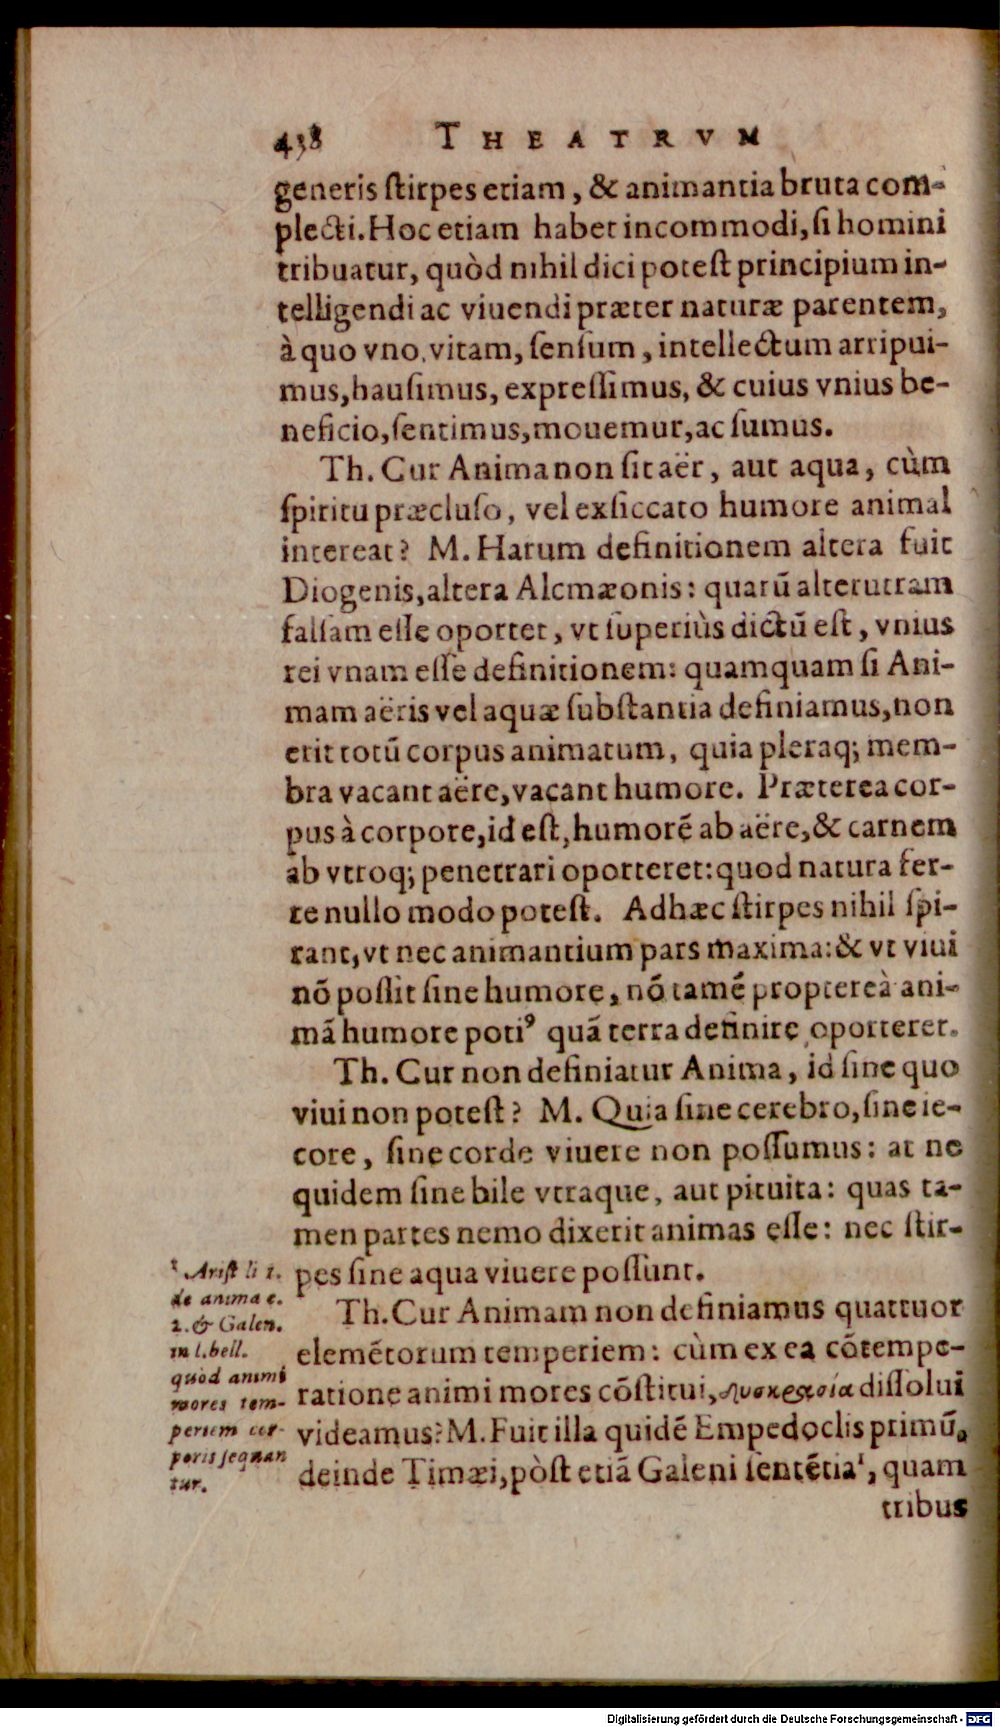 438 THEATRVM
generis ſtirpes etiam, & animantia bruta com-
plecti. Hoc etiam habet incommodi, ſi homini
tribuatur, quòd nihil dici poteſt principium in-
telligendi ac viuendi præter naturæ parentem,
à quo vno, vitam, ſenſum, intellectum arripui-
mus, hauſimus, expreſſimus, & cuius vnius be-
neficio, ſentimus, mouemur, ac ſumus.
Th. Cur Anima non ſit aër, aut aqua, cùm
ſpiritu præcluſo, vel exſiccato humore animal
intereat? M. Harum definitionem altera fuit
Diogenis, altera Alcmæonis: quarū alterutram
falſam eſſe oportet, vt ſuperiùs dictū eſt, vnius
rei vnam eſſe definitionem: quamquam ſi Ani-
mam aëris vel aquæ ſubſtantia definiamus, non
erit totū corpus animatum, quia pleraq; mem-
bra vacant aëre, vacant humore. Præterea cor-
pus à corpore, id eſt, humorē ab aëre, & carnem
ab vtroq; penetrari oporteret: quod natura fer-
re nullo modo poteſt. Adhæc ſtirpes nihil ſpi-
rant, vt nec animantium pars maxima: & vt viui
nō poſſit ſine humore, nō tamē proptereà ani-
mā humore potiꝰ quā terra definire oporteret.
Th. Cur non definiatur Anima, id ſine quo
viui non poteſt? M. Quia ſine cerebro, ſine ie-
core, ſine corde viuere non poſſumus: at ne
quidem ſine bile vtraque, aut pituita: quas ta-
men partes nemo dixerit animas eſſe: nec ſtir-
pes ſine aqua viuere poſſunt.
Th. Cur Animam non definiamus quattuor
elemētorum temperiem: cùm ex ea cōtempe-
ratione animi mores cōſtitui, δυσκρασία diſſolui
videamus? M. Fuit illa quidē Empedoclis primū,
deinde Timæi, pòſt etiā Galeni ſentētia¹, quam
tribus
¹ Ariſt li 1.
de anima c.
2. & Galen.
in l. bell.
quòd animi
mores tem-
periem cor-
poris ſequan
tur.
Digitalisierung gefördert durch die Deutsche Forschungsgemeinschaft - DFG